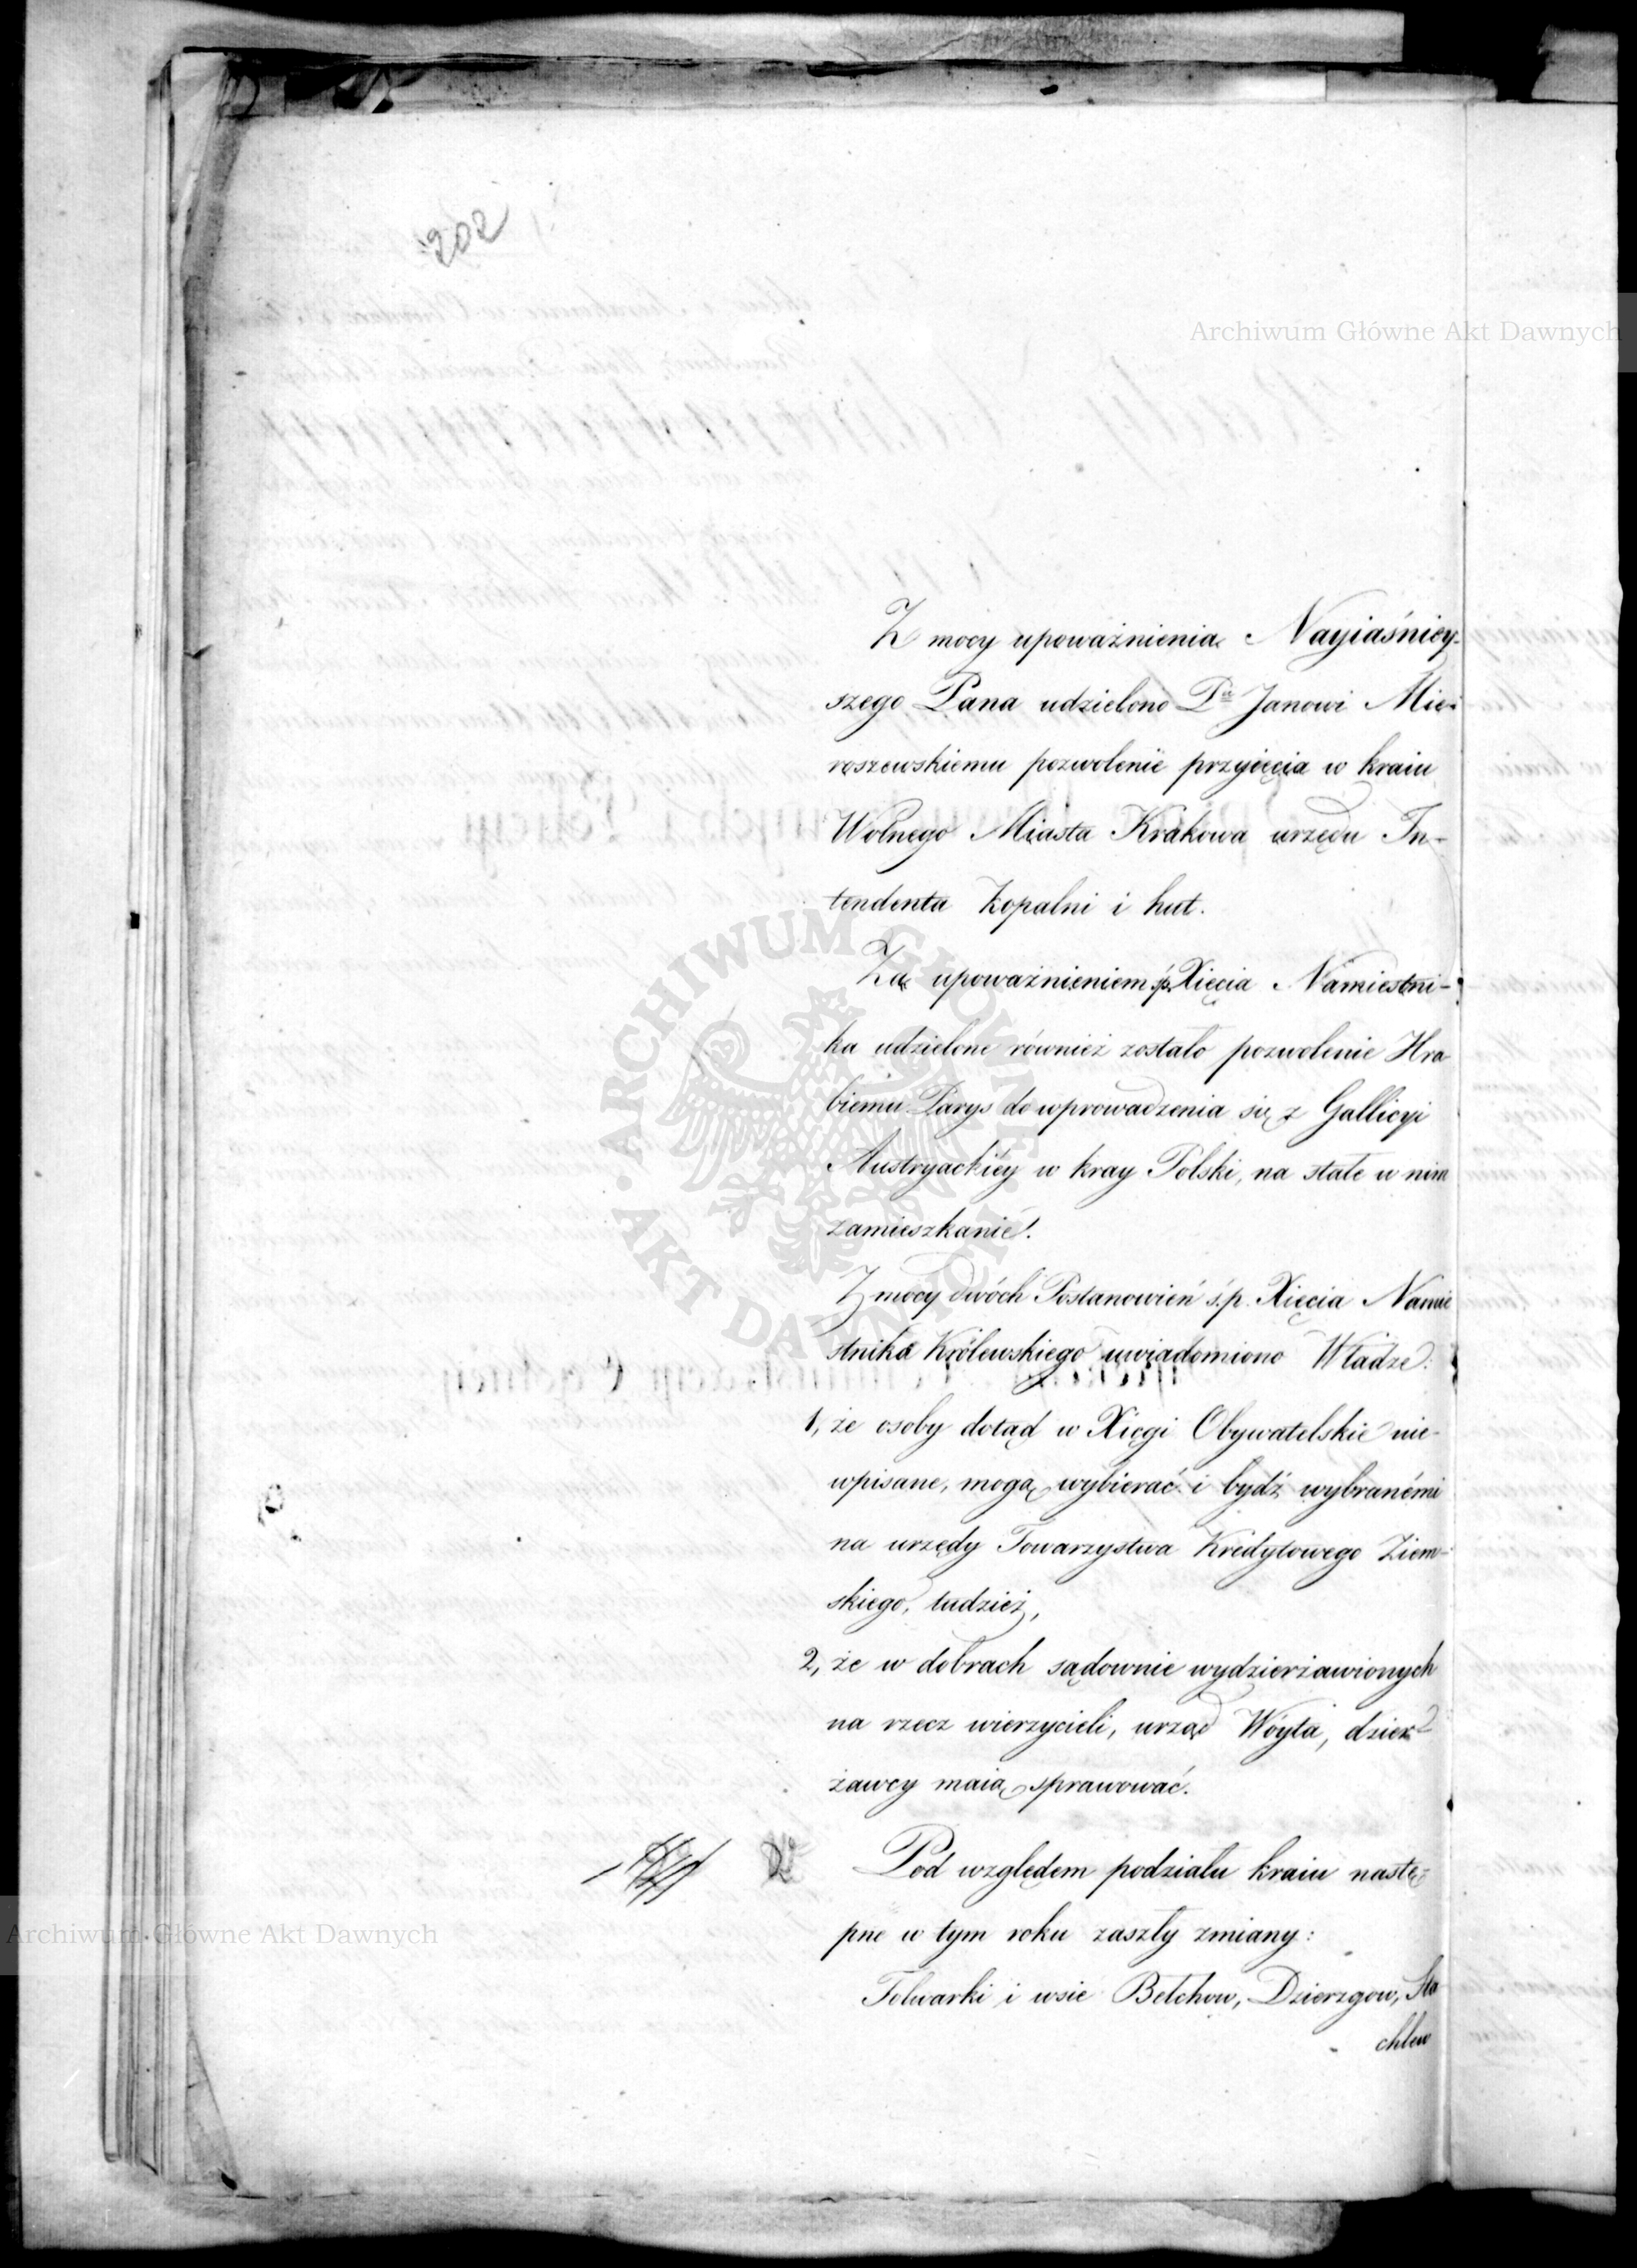 202
Archiwum Główne Akt Dawnych
Z mocy upoważnienia Nayiaśniey-
szego Pana udzielono Pu Janowi Mie-
roszewskiemu pozwolenie przyięcia w kraiu
Wolnego Miasta Krakowa urzędu In-
tendenta Kopalni i hut.
Za upoważnieniem ś.p. Xięcia Namiestni-
ka udzielone również zostało pozwolenie Hra
biemu Parys do wprowadzenia się z Gallicyi
Austryackiéy w kray Polski, na stałe w nim
zamieszkanie.
Z mocy dwóch Postanowień ś.p. Xięcia Namie
stnika Królewskiego uwiadomiono Władze:
1, że osoby dotąd w Xięgi Obywatelskie nie-
wpisane, mogą wybierać i bydź wybranémi
na urzędy Towarzystwa Kredytowego Ziem-
skiego, tudzież,
2, że w dobrach sądownie wydzierżawionych
na rzecz wierzycieli, urząd Wóyta, dzier-
żawcy maią sprawować.
Pod względem podziału kraiu nastę-
pne w tym roku zaszły zmiany:
Folwarki i wsie Bełchow, Dzierzgow, Sta
chlew
ARCHIWUM GŁÓWNE AKT DAWNYCH
Archiwum Główne Akt Dawnych